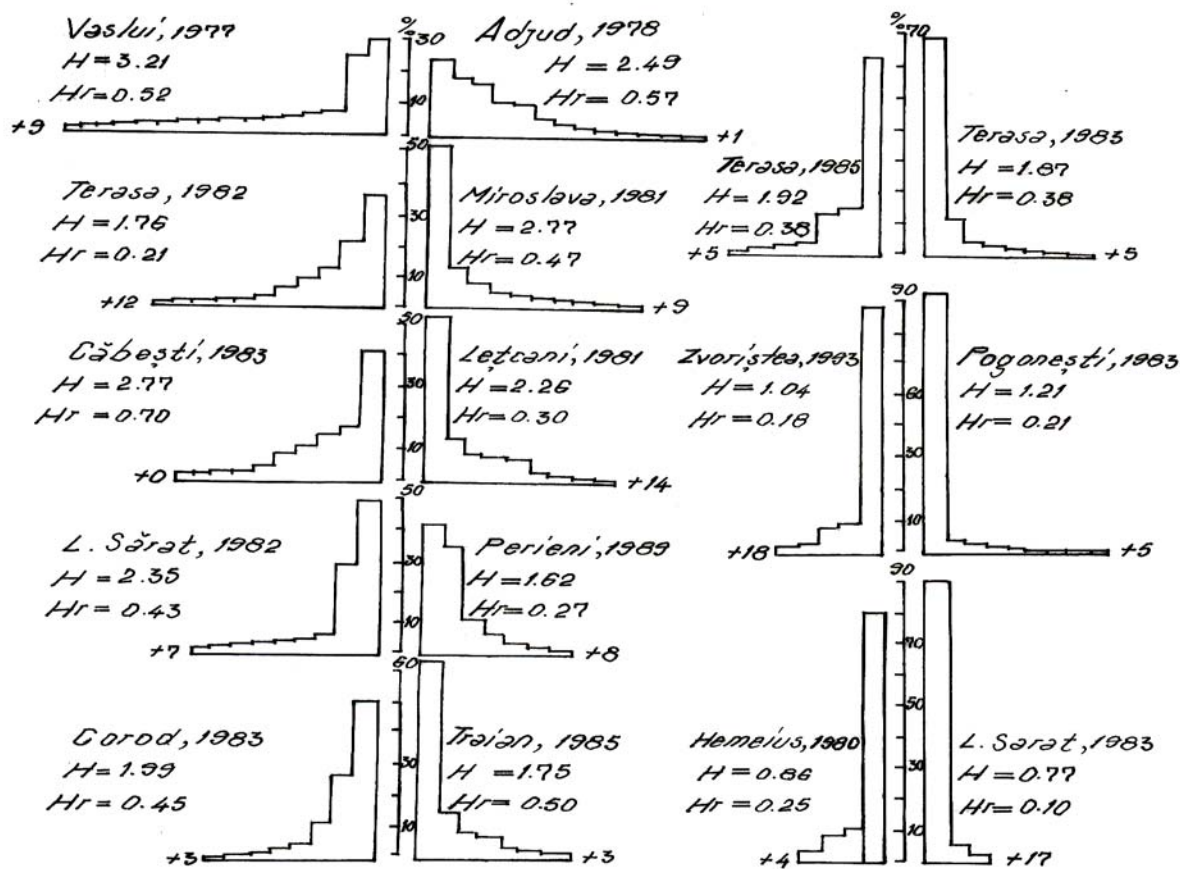 Vaslui, 1977
H = 3.21
Hr = 0.52
+9
% 30
10
Adjud, 1978
H = 2.49
Hr = 0.57
+1
Terasa, 1982
H = 1.76
Hr = 0.21
+12
50
30
10
Miroslava, 1981
H = 2.77
Hr = 0.47
+9
Găbești, 1983
H = 2.77
Hr = 0.70
+0
50
30
10
Lețcani, 1981
H = 2.26
Hr = 0.30
+14
L. Sărat, 1982
H = 2.35
Hr = 0.43
+7
50
30
10
Perieni, 1989
H = 1.62
Hr = 0.27
+8
Corod, 1983
H = 1.99
Hr = 0.45
+3
60
30
10
Traian, 1985
H = 1.75
Hr = 0.50
+3
Terasa, 1985
H = 1.92
Hr = 0.38
+5
% 70
Terasa, 1983
H = 1.87
Hr = 0.38
+5
Zvoriștea, 1983
H = 1.04
Hr = 0.18
+18
90
60
30
10
Pogonești, 1983
H = 1.21
Hr = 0.21
+5
Hemeius, 1980
H = 0.86
Hr = 0.25
+4
90
70
50
30
10
L. Sarat, 1983
H = 0.77
Hr = 0.10
+17